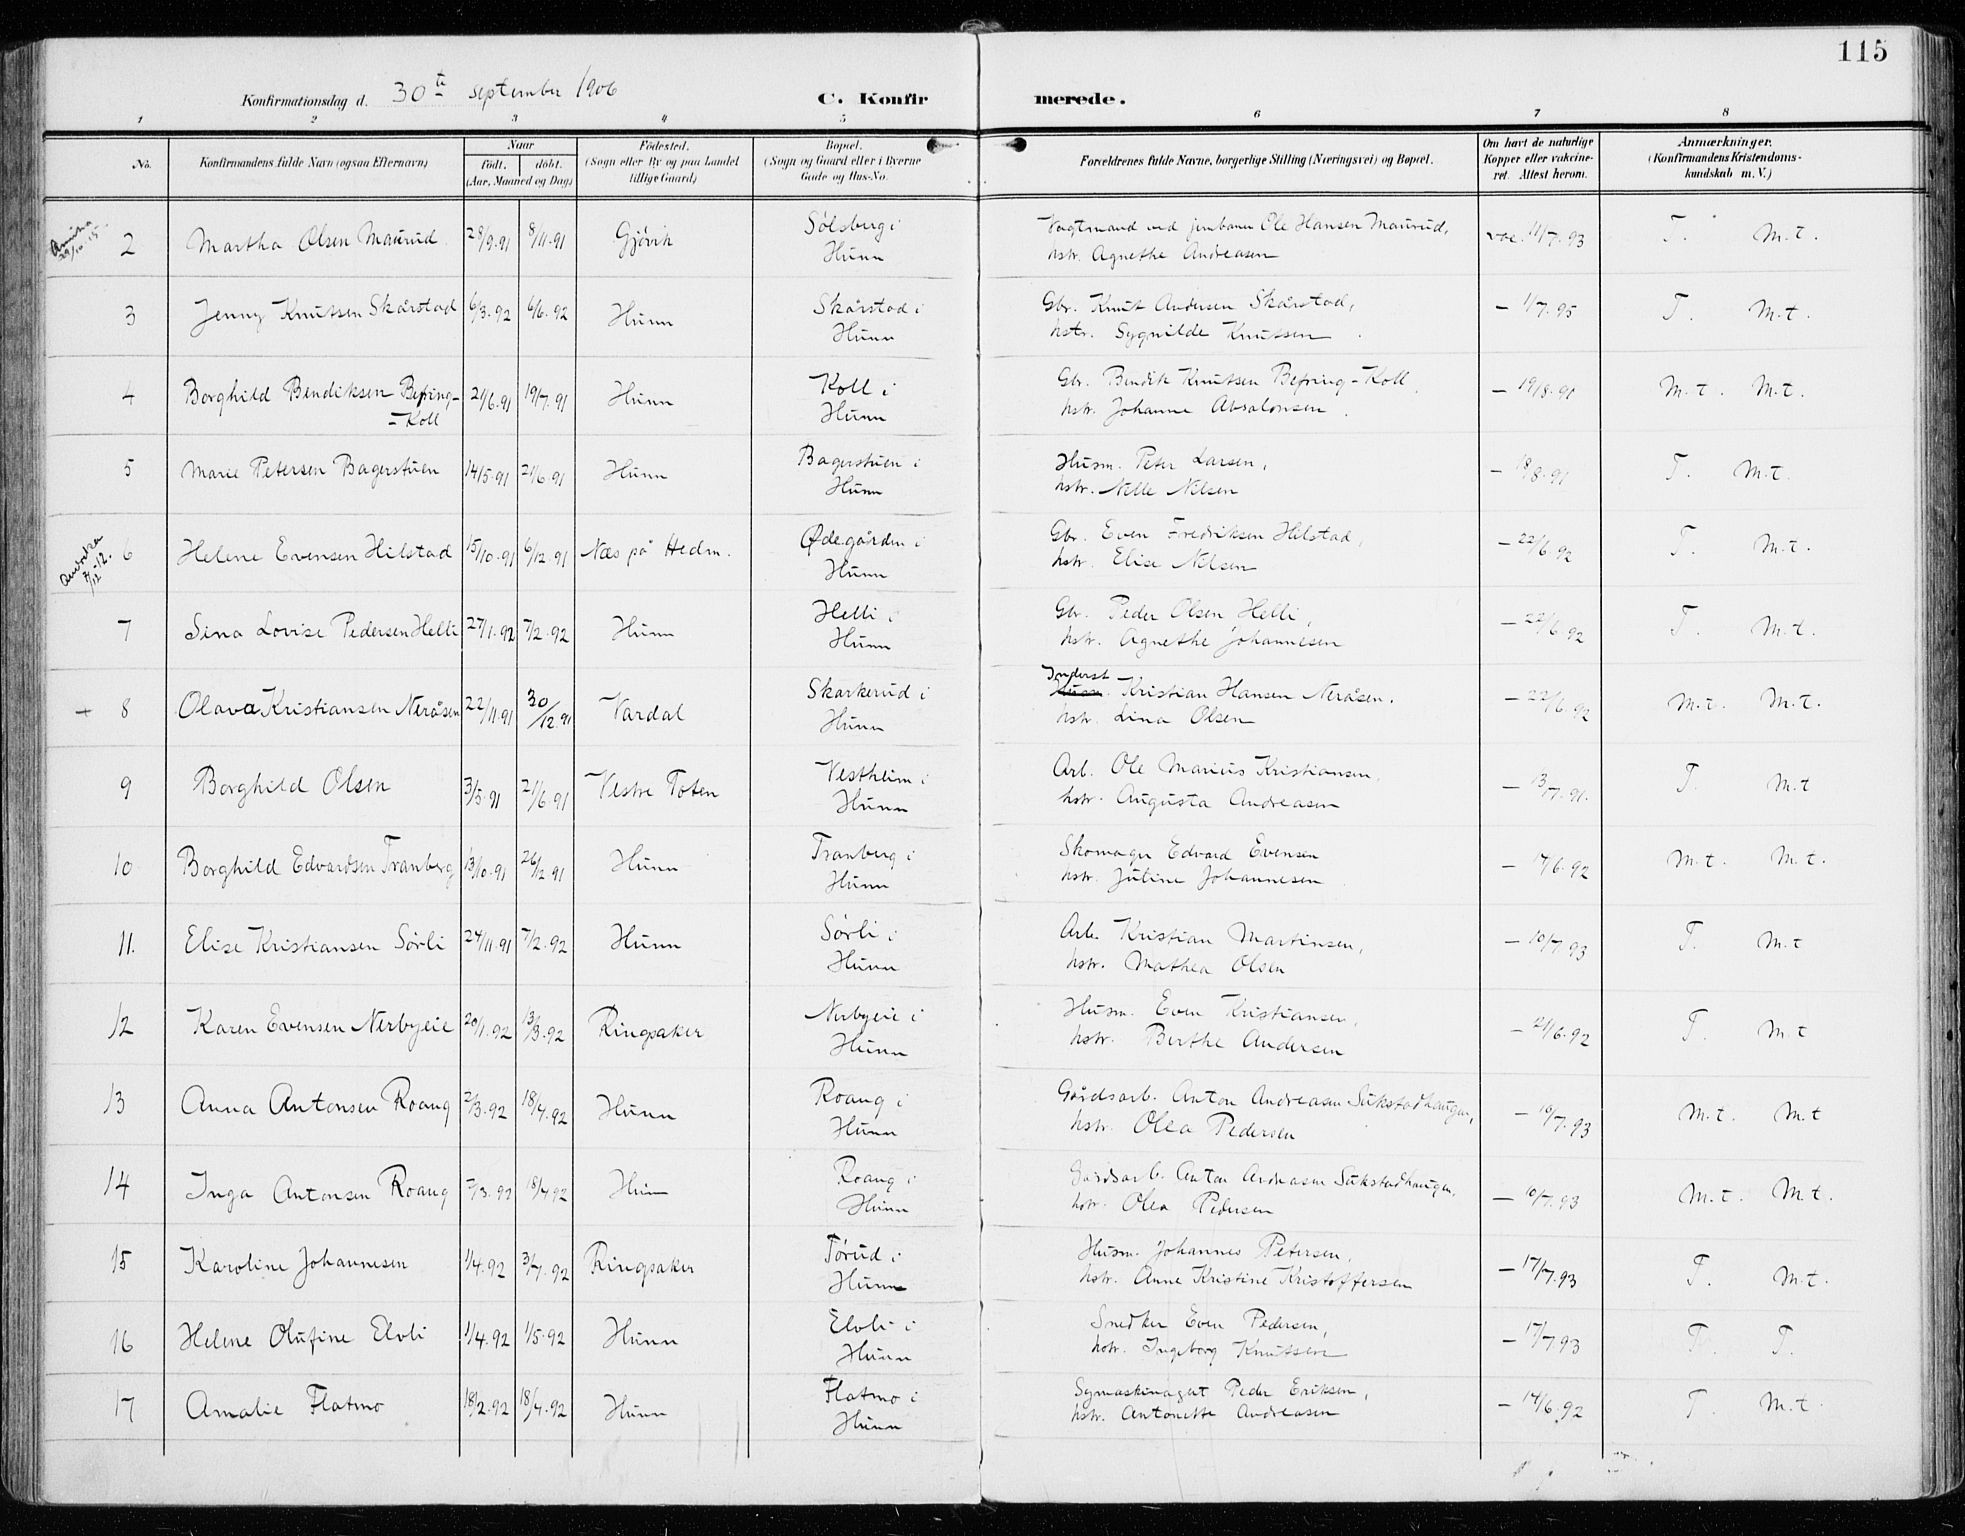 115
Konfirmationsdag d. 30te september 1906 C. Konfirmerede.
1 2 3 4 5 6 7 8
No. Konfirmandens fulde Navn (ogsaa Efternavn) Naar født. døbt. (Aar, Maaned og Dag) Fødested. (Sogn eller By og paa Landet tillige Gaard) Bopæl. (Sogn og Gaard eller i Byerne Gade og Hus-No. Forældrenes fulde Navne, borgerlige Stilling (Næringsvei) og Bopæl. Om havt de naturlige Kopper eller vakcineret. Attest herom. Anmærkninger. (Konfirmandens Kristendomskundskab m. V.)
2 Martha Olsen Maurud 28/9.91 8/11.91 Gjøvik Sølsberg i Hunn Vagtmand ved jernbanen Ole Hansen Maurud, hstr. Agnethe Andreasen vac. 11/7.93 T. M.t.
3 Jenny Knutsen Skårstad 6/3.92 6/6.92 Hunn Skårstad i Hunn Gbr. Knut Andersen Skårstad, hstr. Sygnilde Knutssen — 1/7.95 T. M.t.
4 Borghild Bendiksen Befring-Koll 21/6.91 19/7.91 Hunn Koll i Hunn Gbr. Bendik Knutsen Befring-Koll, hstr. Johanne Absalonsen. — 19/8.91 M.t. M.t.
5 Marie Petersen Bagerstuen 14/5.91 21/6.91 Hunn Bagerstuen i Hunn Husm. Peter Larsen, hstr. Nille Nilsen — 18/8.91 T. M.t.
6 Helene Evensen Hilstad 15/10.91 6/12.91 Næs på Hedm. Ødegården i Hunn Gbr. Even Fredriksen Hilstad, hstr. Elise Nilsen — 22/6.92 T. M.t.
7 Sina Lovise Pedersen Helli 27/1.92 7/2.92 Hunn Helli i Hunn Gbr. Peder Olsen Helli, hstr. Agnethe Johannesen — 22/6.92 T. M.t.
+ 8 Olava Kristiansen Neråsen 22/11.91 30/12.91 Vardal Skarkerud i Hunn Inderst Husm. Kristian Hansen Neråsen. hstr. Lina Olsen — 22/6.92 M.t. M.t.
9 Borghild Olsen 3/5.91 21/6.91 Vestre Toten Vestheim i Hunn Arb. Ole Marius Kristiansen, hstr. Augusta Andreasen — 13/7.91. T. M.t
10 Borghild Edvardsen Tranberg 13/10.91 26/12.91 Hunn Tranberg i Hunn Skomager Edvard Evensen hstr. Jutine Johannesen — 17/6.92 M.t. M.t.
11. Elise Kristiansen Sørli 24/11.91 7/2.92 Hunn Sørli i Hunn Arb. Kristian Martinsen, hstr. Mathea Olsen — 10/7.93 T. M.t
12 Karen Evensen Nerbyeie 20/1.92 13/3.92 Ringsaker Nerbyeie i Hunn Husm. Even Kristiansen, hstr. Berthe Andersen — 21/6.92 T. M.t
13 Anna Antonsen Roang 2/3.92 18/4.92 Hunn Roang i Hunn Gårdsarb. Anton Andreasen Sukstadhaugen, hstr. Olea Pedersen — 10/7.93 M.t. M.t
14 Inga Antonsen Roang 2/3.92 18/4.92 Hunn Roang i Hunn Gårdsarb. Anton Andreasen Sukstadhaugen, hstr. Olea Pedersen — 10/7.93 M.t. M.t.
15 Karoline Johannesen 1/4.92 3/7.92 Ringsaker Tørud i Hunn Husm. Johannes Petersen, hstr. Anne Kristine Kristoffersen — 17/7.93 T. M.t.
16 Helene Olufine Elvli 1/4.92 1/5.92 Hunn Elvli i Hunn Snedker Even Pedersen, hstr. Ingeborg Knutssen — 17/7.93 T. T.
17 Amalie Flatmo 18/2.92 18/4.92 Hunn Flatmo i Hunn Symaskinagent Peder Eriksen, hstr. Antonette Andreasen — 14/6.92 T. M.t.